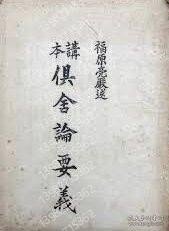 福原亮嚴
講本
俱舍論要義